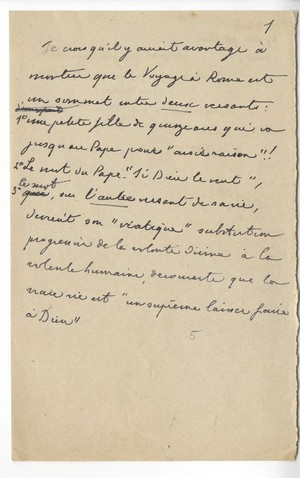 1
Je crois qu'il y aurait avantage à
montrer que le Voyage à Rome est
un sommet entre deux versants :
1° une petite fille de quinze ans qui va
jusqu'au Pape pour "avoir raison"!!
2° Le mot du Pape : "Si Dieu le veut",
3° le mot, sur l'autre versant de sa vie,
devient son "viatique" substitution
progressive de la volonté divine à la
volonté humaine, découverte que la
vraie vie est "un suprême laisser faire
à Dieu"
5